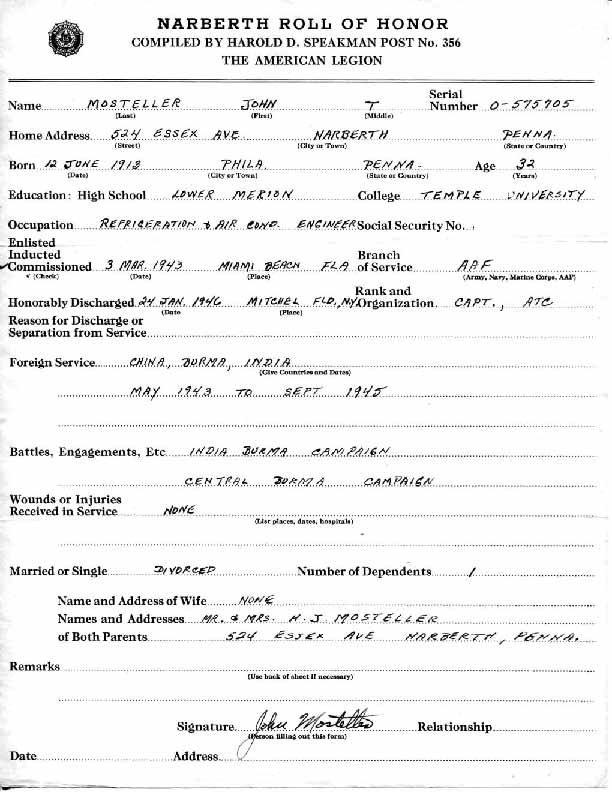 NARBERTH ROLL OF HONOR
COMPILED BY HAROLD D. SPEAKMAN POST No. 356
THE AMERICAN LEGION
Name MOSTELLER JOHN T Serial Number O-575905
(Last) (First) (Middle)
Home Address 524 ESSEX AVE NARBERTH PENNA.
(Street) (City or Town) (State or Country)
Born 12 JUNE 1913 PHILA. PENNA. Age 32
(Date) (City or Town) (State or Country) (Years)
Education: High School LOWER MERION College TEMPLE UNIVERSITY
Occupation REFRIGERATION & AIR COND. ENGINEER Social Security No.
Enlisted
Inducted
✓Commissioned 3 MAR. 1943 MIAMI BEACH FLA Branch of Service AAF
√ (Check) (Date) (Place) (Army, Navy, Marine Corps, AAF)
Honorably Discharged 24 JAN. 1946 MITCHEL FLD, NY. Rank and Organization CAPT., ATC
(Date (Place)
Reason for Discharge or
Separation from Service
Foreign Service CHINA, BURMA, INDIA
(Give Countries and Dates)
MAY 1943 TO SEPT 1945
Battles, Engagements, Etc INDIA BURMA CAMPAIGN
CENTRAL BURMA CAMPAIGN
Wounds or Injuries
Received in Service NONE
(List places, dates, hospitals)
Married or Single DIVORCED Number of Dependents 1
Name and Address of Wife NONE
Names and Addresses MR. & MRS. N. J MOSTELLER
of Both Parents 524 ESSEX AVE NARBERTH, PENNA.
Remarks
(Use back of sheet if necessary)
Signature John Mosteller Relationship
(Person filling out this form)
Date Address